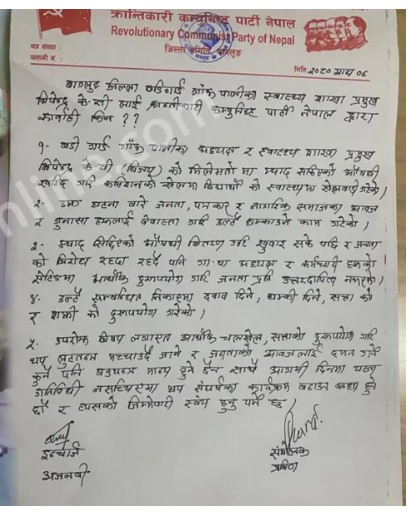 क्रान्तिकारी कम्युनिष्ट पार्टी नेपाल
Revolutionary Communist Party of Nepal
जिल्ला समिति, बागलुङ
पत्र संख्या :
चलानी नं. :
मिति: २०८० माघ ०६
बागलुङ जिल्ला बडिगाड गाँउ पालीका स्वास्थ्य शाखा प्रमुख
दिपेन्द्र के.सी लाई क्रान्तीकारी कम्युनिष्ट पार्टी नेपाल द्वारा
कार्वाही किन ??
१- बडी गाड गाँउ पालीका अध्यक्ष र स्वास्थ्य शाखा प्रमुख
दिपेन्द्र के.सी को मिलेमतो मा म्याद सद्दिएको औषधी
खरिद गरि कमिशनको खेलमा बिरामी को स्वास्थ्यमा खेलवाड गरेको।
२- उक्त घटना बारे जनता, पत्रकार र नागरिक समाजका आवाज
र गुनासा हरुलाई वेवास्ता गरि उल्टै धम्काउने काम गरेको।
३- म्याद सिद्दिएको औषधी वितरण गरि
को विरोध रहदा रहदै पनि गा.पा अध्यक्ष र कर्मचारी हरुको
सेटिङमा आर्थीक दुरुपयोग गरि जनता प्रति उत्तरदायित्व नभएको।
४- उल्टै सम्बन्धित निकायमा दवाव दिने, धम्की दिने, सत्ता को
र शक्ती को दुरुपयोग गरेको।
५- उपरोक्त विषय लगायत आर्थीक चलखेल, सत्ताको दुरुपयोग गरि
थप लुटतन्त्र मच्चाउदै जाने र जनताको आवाजलाई दमन गर्ने
कुनै पनि मान्य हुने छैन साथै आगामी दिनमा
गतिविधी नसच्चिएमा थप संघर्षका कार्यक्रम बढाउन बाध्य हुने
छौं र त्यसको जिम्मेवारी स्वयं हुनु पर्ने छ।
इन्चार्ज
अजनवी
संयोजक
प्रविण